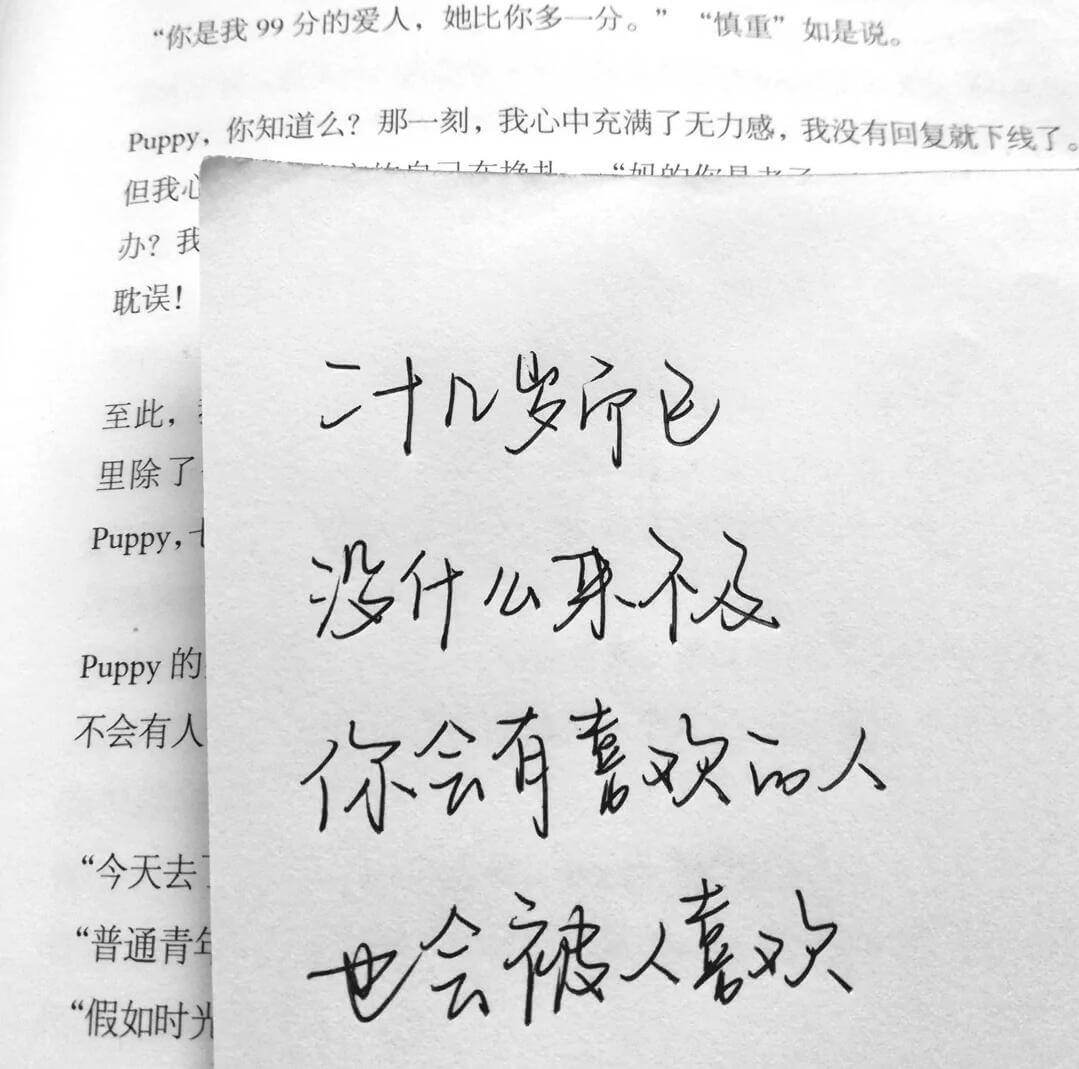 “你是我 99 分的爱人，她比你多一分。” “慎重”如是说。
Puppy，你知道么？那一刻，我心中充满了无力感，我没有回复就下线了。
但我心 自己在挣扎 “妈的你是老子
办？我
耽误！
至此，
里除了
Puppy，
Puppy 的
不会有人
“今天去了
“普通青年
“假如时光
二十几岁而已
没什么来不及
你会有喜欢的人
也会被人喜欢